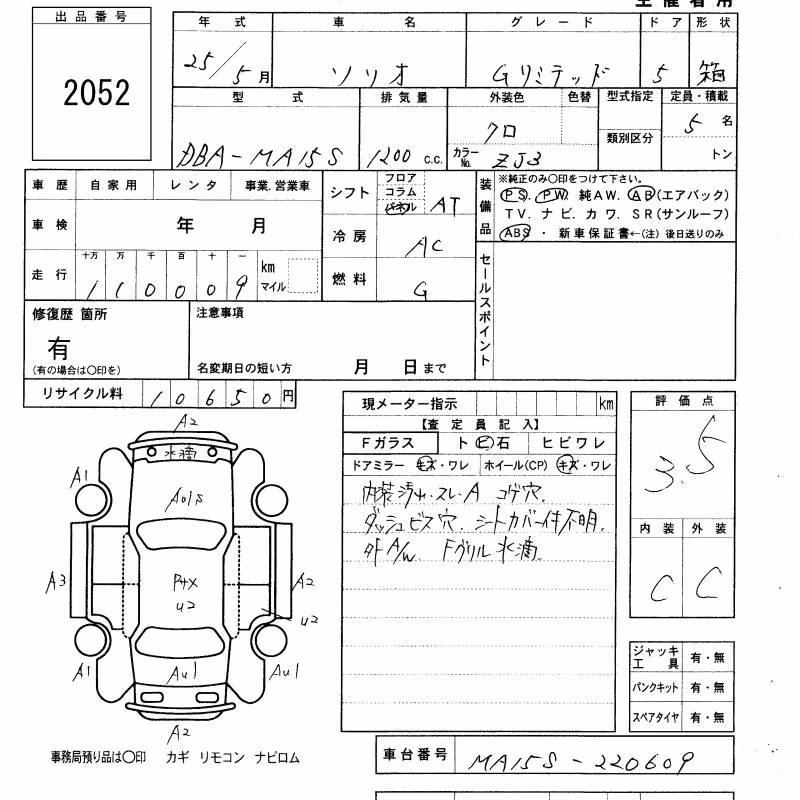 主催者用
出品番号
2052
年式 車名 グレード ドア 形状
25/5月 ソリオ Gリミテッド 5 箱
型式 排気量 外装色 色替 型式指定 定員・積載
DBA-MA15S 1200 c.c. クロ 類別区分 5名
カラーNo. ZJ3 トン
車歴 自家用 レンタ 事業.営業車
車検 年 月
走行 十万 万 千 百 十 一 km
110009 マイル
シフト フロア コラム パネル AT
冷房 AC
燃料 G
装備品 ※純正のみ〇印をつけて下さい。
PS. PW. 純AW. AB(エアバック)
TV. ナビ. カワ. SR(サンルーフ)
ABS ・ 新車保証書←(注) 後日送りのみ
セールスポイント
修復歴 箇所
有
(有の場合は〇印を)
注意事項
名変期日の短い方 月 日まで
リサイクル料 10650円
現メーター指示 km
【査定員記入】
Fガラス ト ビ 石 ヒビワレ
ドアミラー キズ・ワレ ホイール(CP) キズ・ワレ
内装汚れ・スレ・A コゲ穴.
ダッシュビス穴. シートカバー付不明.
外A/W Fグリル水滴
評価点
3.5
内装 外装
C C
A2
水滴
A1
A01S
A3
PtX
U2
A2
U2
A1
AU1
AU1
A2
ジャッキ工具 有・無
パンクキット 有・無
スペアタイヤ 有・無
事務局預り品は〇印 カギ リモコン ナビロム
車台番号 MA15S-220609